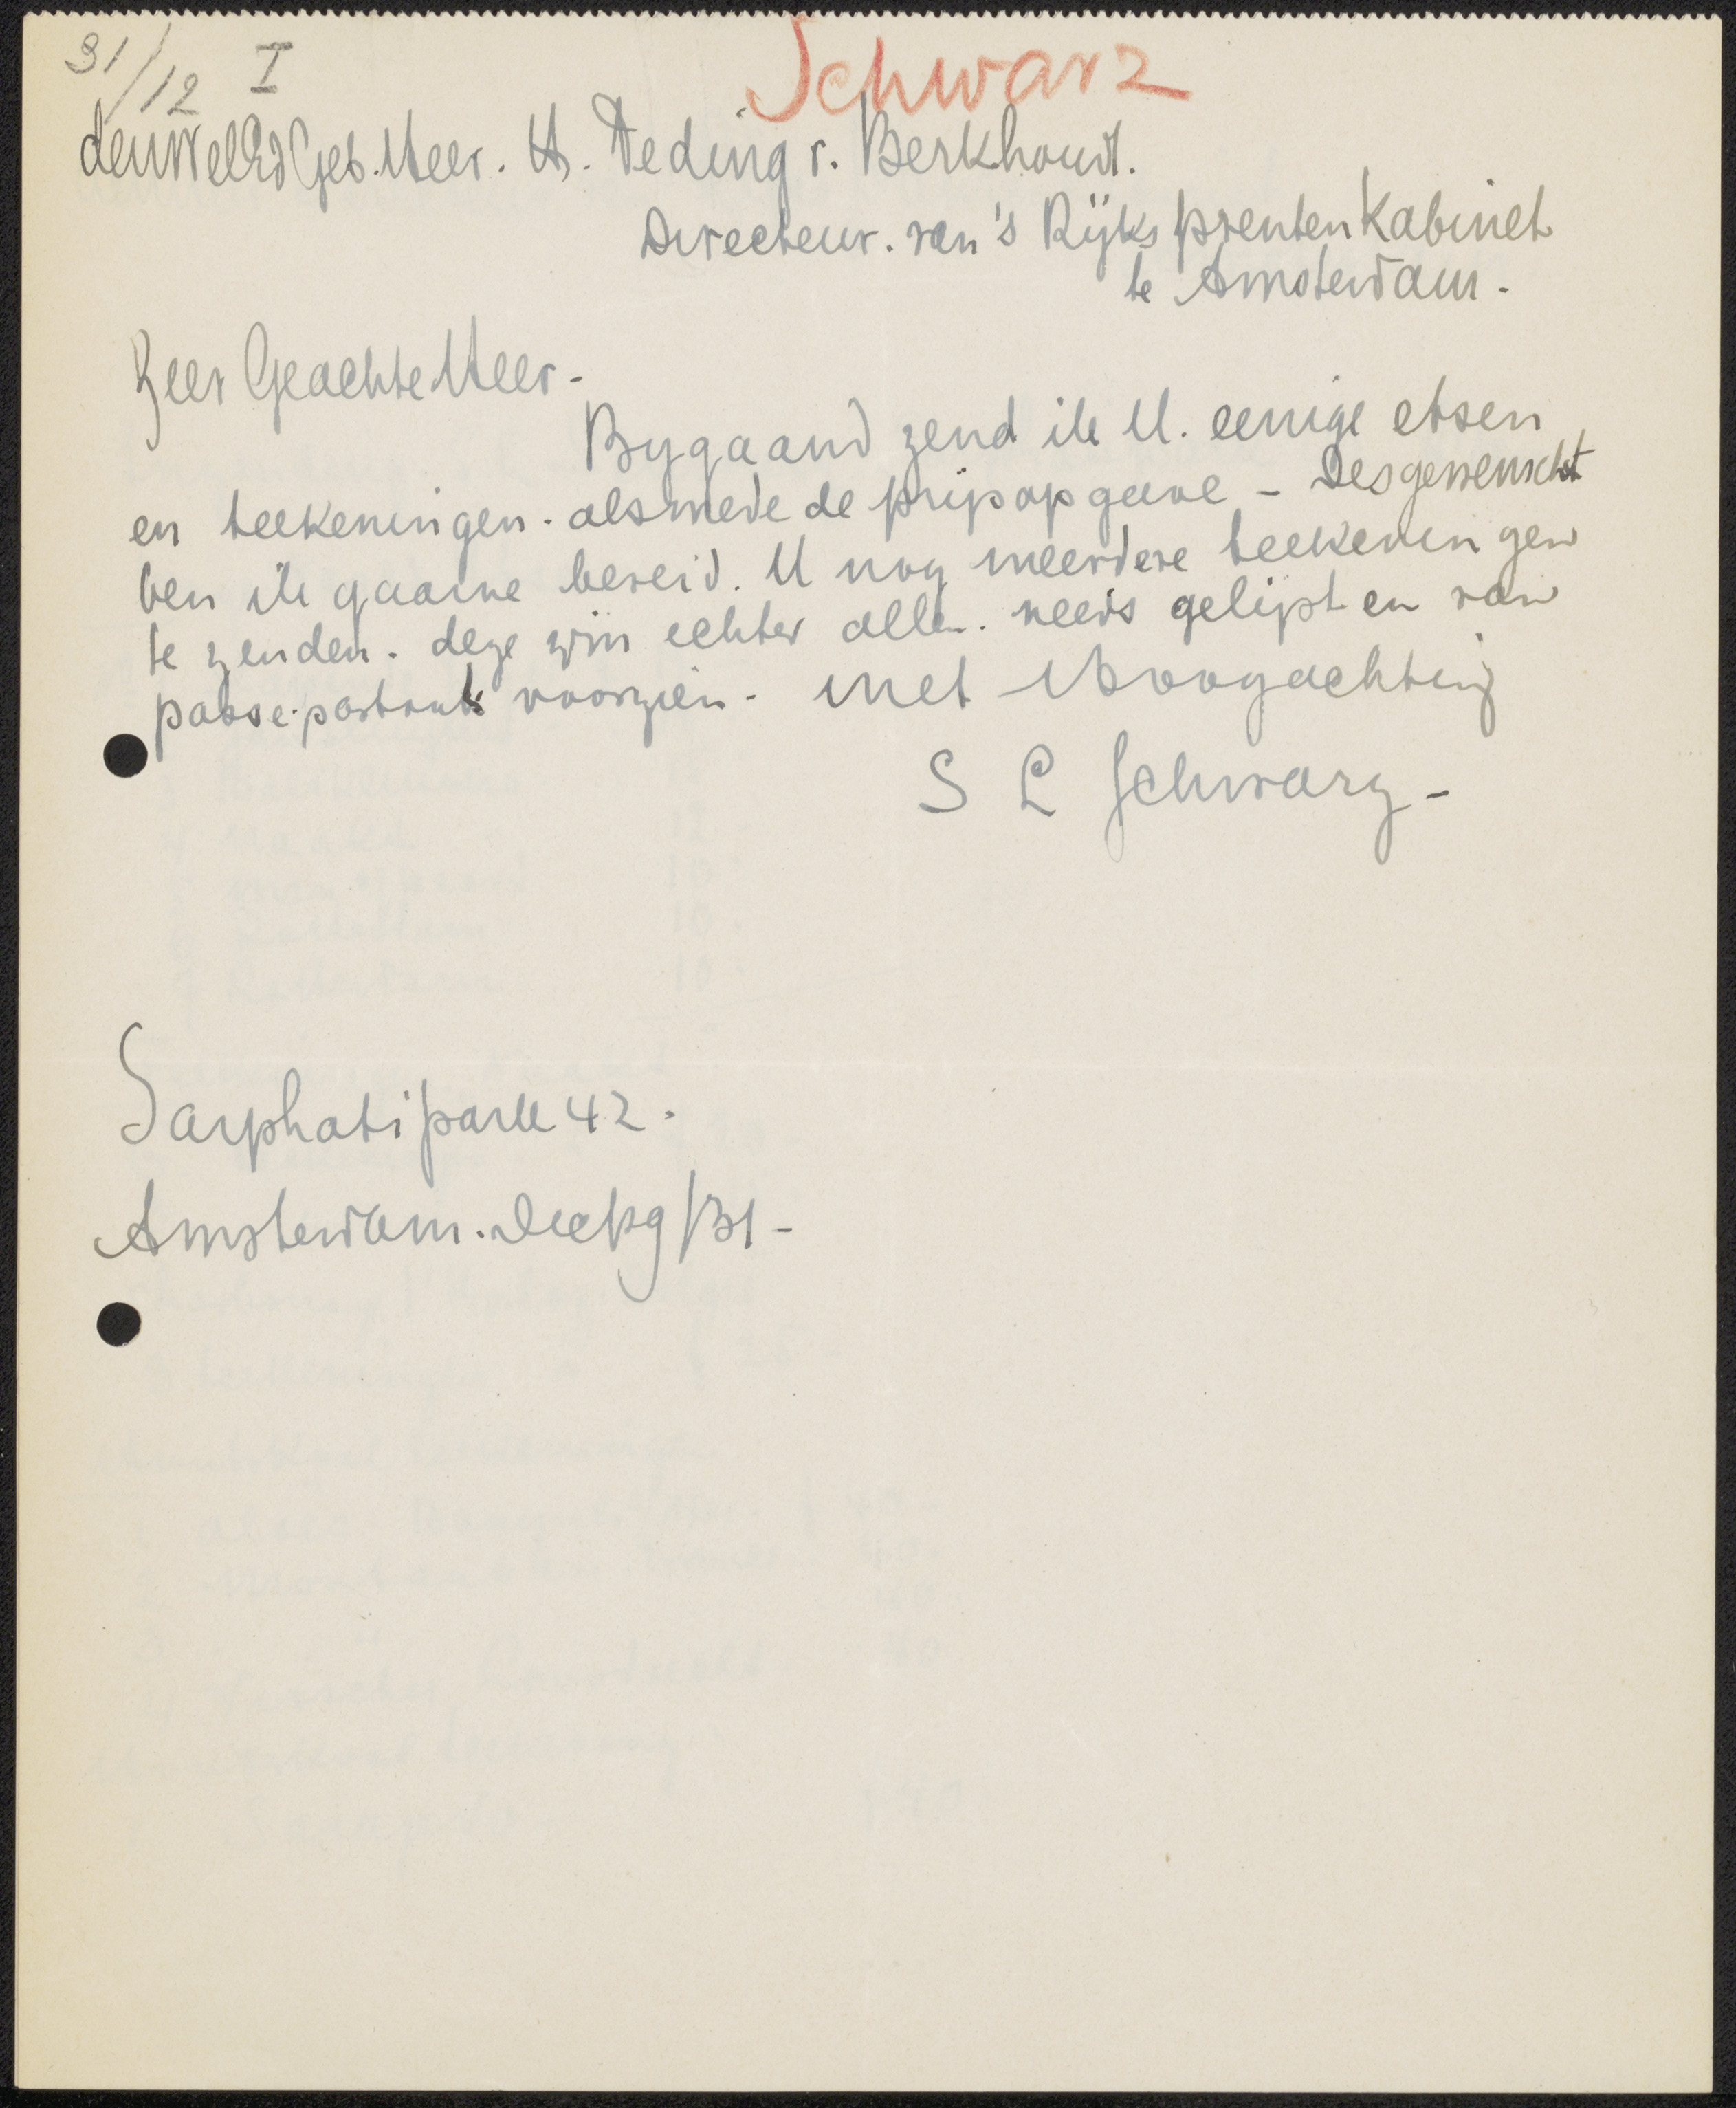 31/12 I
Schwarz
den WelEdGeb. Heer. H. Teding v. Berkhout.
Directeur. van 's Rijks prentenkabinet
te Amsterdam.
Zeer Geachte Heer -
Bygaand zend ik U. eenige etsen
en teekeningen. alsmede de prijsopgave - Desgewenscht
ben ik gaarne bereid. U nog meerdere teekeningen
te zenden. deze zijn echter allen. reeds gelijst en van
passe-partouts voorzien. met Hoogachting
S L Schwarz -
Sarphatipark 42.
Amsterdam. Dec 19/31 -